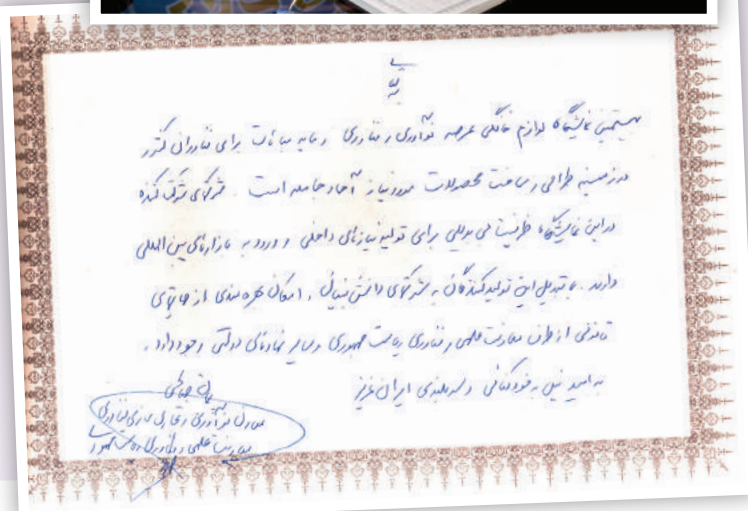 بسمه تعالی
بیستمین نمایشگاه لوازم خانگی عرصه نوآوری و فناوری و مایه مباهات برای فناوران کشور
در زمینه طراحی و ساخت محصولات مورد نیاز آحاد جامعه است. شرکتهای شرکت کننده
در این نمایشگاه ظرفیت بی بدیلی برای تولید نیازهای داخلی و ورود به بازارهای بین المللی
دارند. با تبدیل این تولیدکنندگان به شرکتهای دانش بنیان، امکان بهره مندی از حمایتهای
قانونی از طرف معاونت علمی و فناوری ریاست جمهوری و سایر نهادهای دولتی وجود دارد.
به امید نیل به خودکفائی و سربلندی ایران عزیز
معاون نوآوری و تجاری سازی فناوری
معاونت علمی و فناوری